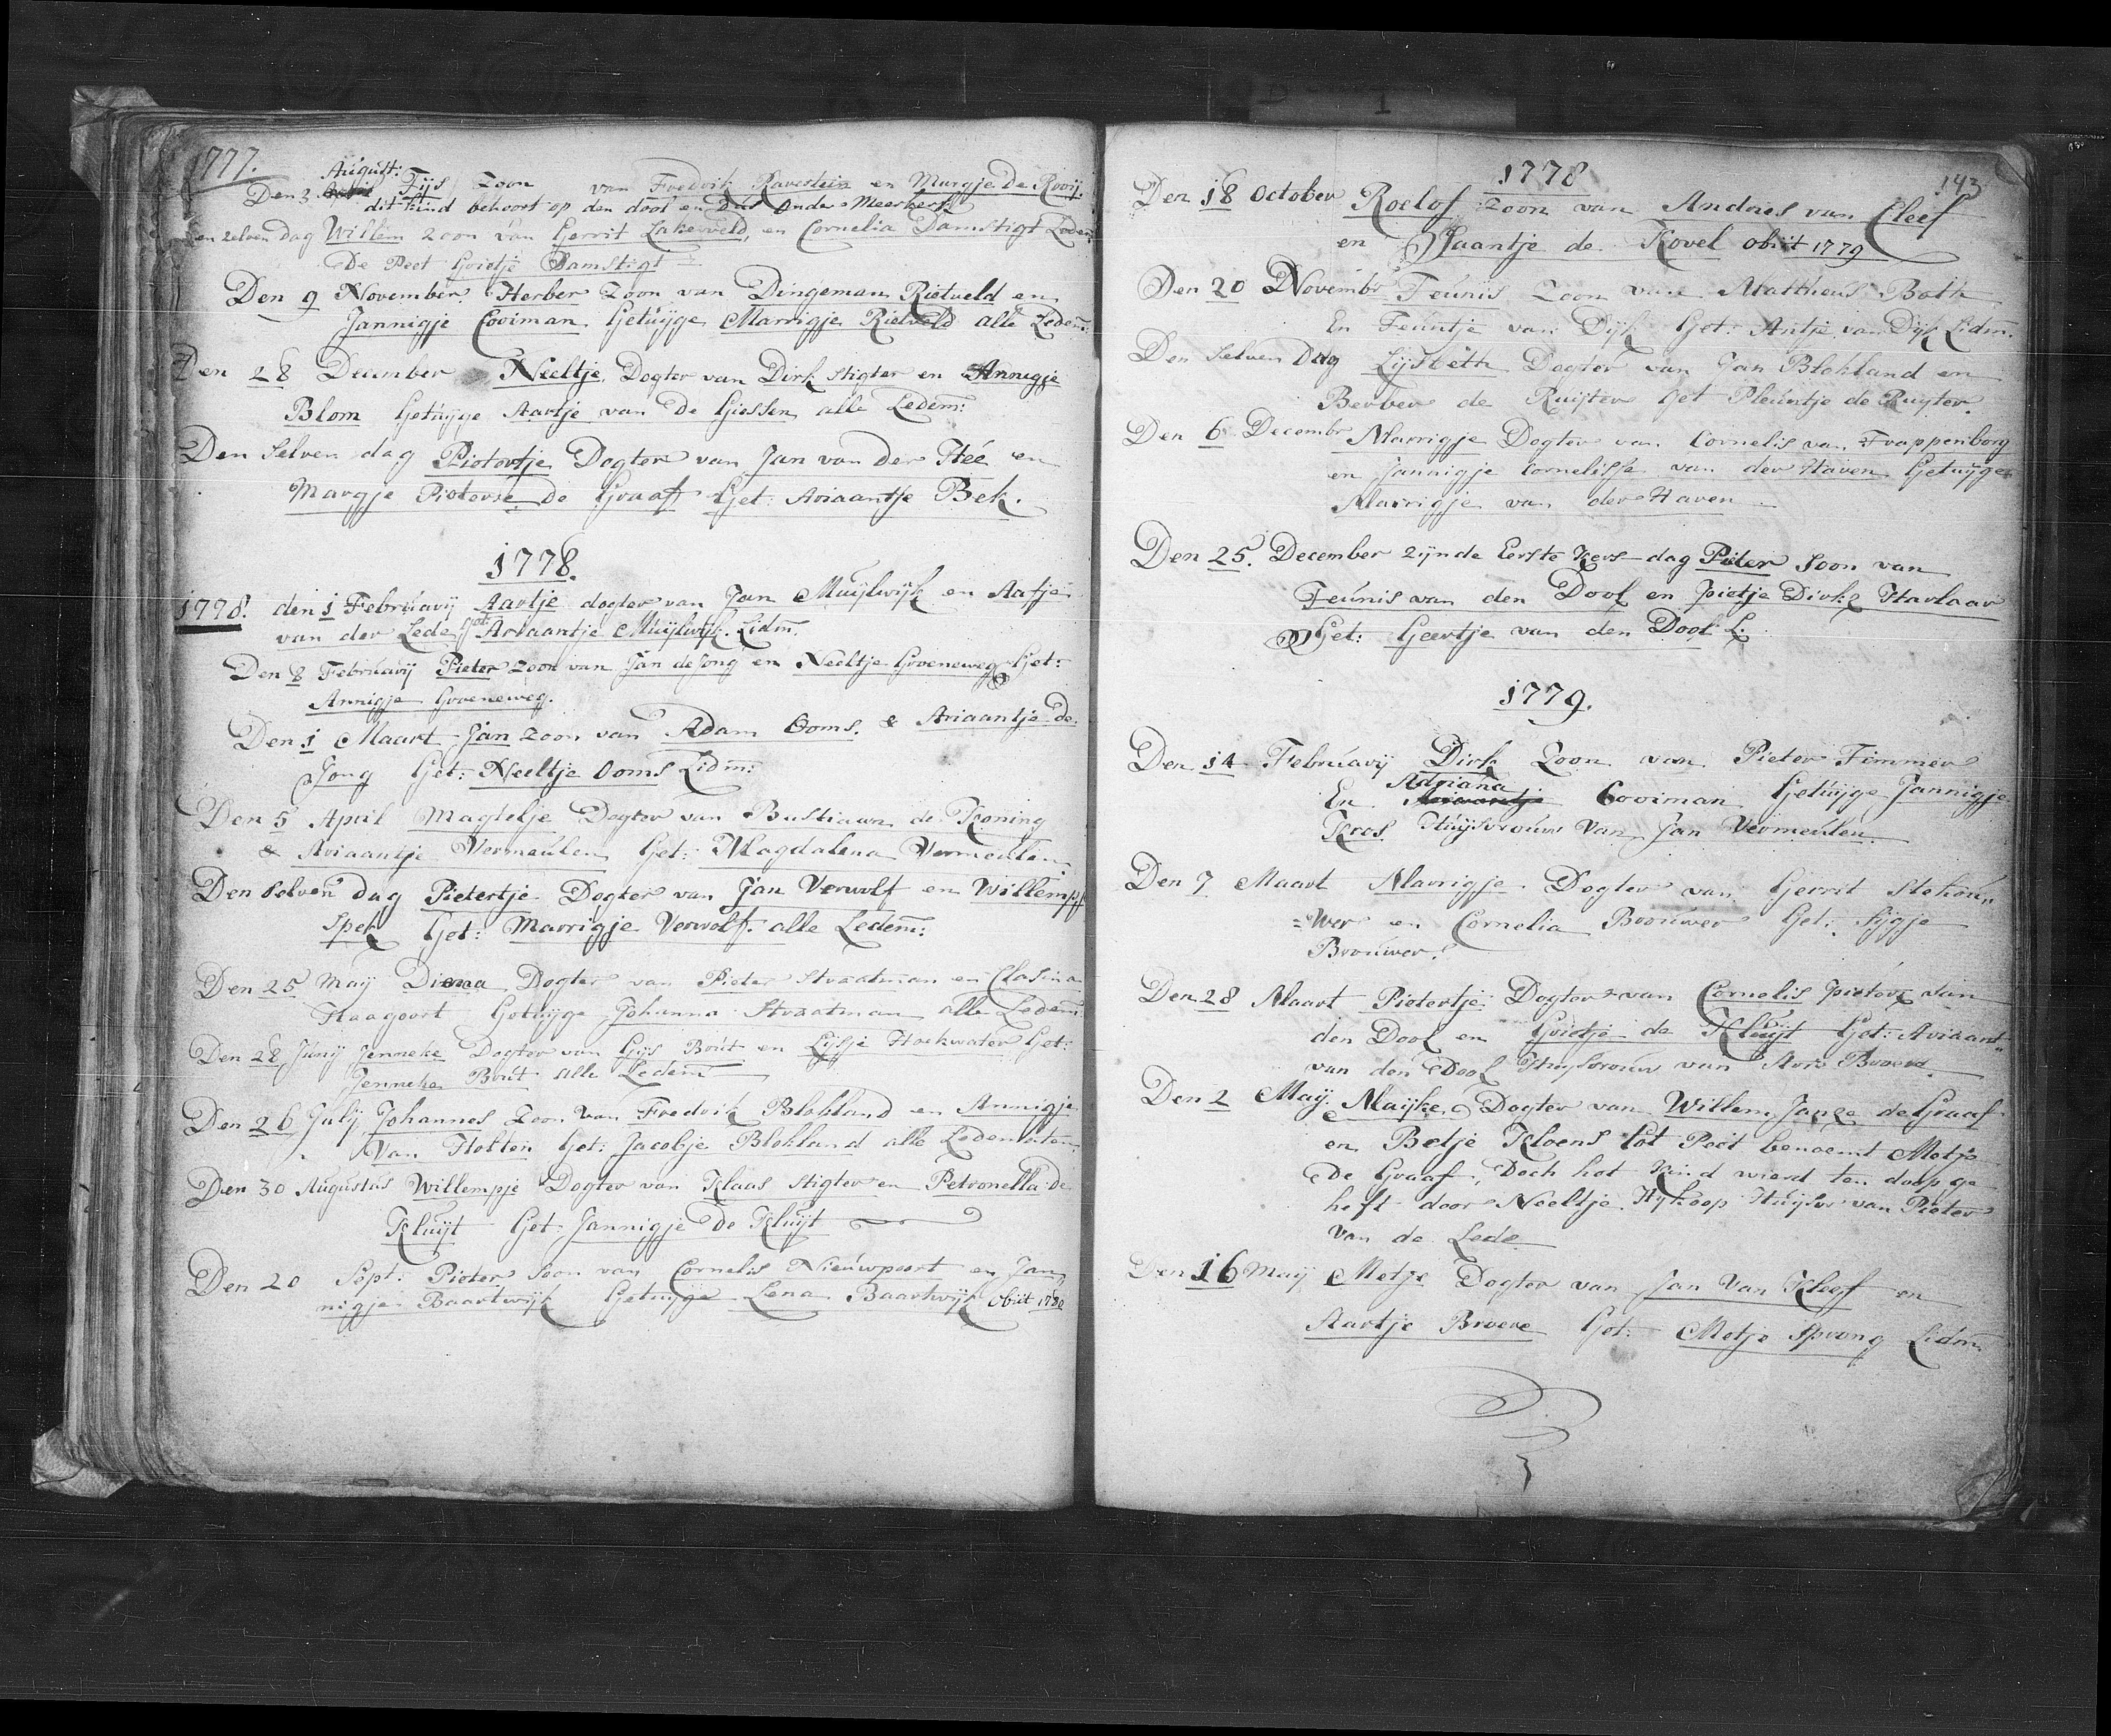 1777.
August:
Den 3 Tijs Zoon van Fredrik Ravestein en Margje De Rooij.
dit kind behoort op den dool en dus onder Meerkerk
en zelven dag Willem zoon van Gerrit Lakerveld, en Cornelia Damstigt Ledem
De Peet Grietje Damstigt
Den 9 November Herber Zoon van Dingeman Rietveld en
Jannigje Cooiman Getuÿge Marrigje Rietveld alle Ledem:
Den 28 December Neeltje Dogter van Dirk Stigter en Annigje
Blom Getuÿge Aartje van De Giessen alle Ledem:
Den Selven dag Pietertje Dogter van Jan van der Heé en
Margje Pieterse de Graaf Get: Ariaantje Bek.
1778.
1778. den 1 Februarij Aartje dogter van Jan Muijlwijk en Aafje
van der Lede Get: Ariaantje Muijlwijk. Lidm.
Den 8 Februarij Pieter zoon van Jan de Jong en Neeltje Groeneweg Get:
Annigje Groeneweg.
Den 1 Maart Jan zoon van Adam Ooms. & Ariaantje de
Jong Get: Neeltje Ooms Lidm:
Den 5 April Magtelje Dogter van Bastiaan de Koning
& Ariaantje Vermeulen Get: Magdalena Vermeulen
Den Selven dag Pietertje Dogter van Jan Verwolf en Willemp
Spek Get: Marrigje Verwolf. alle Ledem:
Den 25 May Diena Dogter van Pieter Straatman en Clasina
Haagoort Getuijge Johanna Straatman alle Ledem
Den 28 Junij Jenneke Dogter van Gijs Bout en Lijsje Hoekwater Get:
Jenneke Bout alle Ledem
Den 26 July Johannes Zoon van Fredrik Blokland en Annigje
Van Houten Get: Jacobje Blokland alle Ledematen
Den 30 Augustus Willempje Dogter van Klaas Stigter en Petronella de
Kluijt Get: Jannigje De Kluijt
Den 20 Sept: Pieter Soon van Cornelis Nieuwpoort en Jan
nigje Baartwijk Getuijge Lena Baartwijk obiit 1780
143
1778
Den 18 October Roelof zoon van Andries van Cleef
en Jaantje de Kovel obiit 1779
Den 20 Novembr Teunis Zoon van Mattheus Both
En Teuntje van Dijk Get: Antje van Dijk Lidm.
Den Selven Dag Lijsbeth Dogter van Jan Blokland en
Berber de Ruijter Get Pleuntje de Ruyter.
Den 6 Decembr Marrigje Dogter van Cornelis van Trappenborg
en Jannigje Cornelisse van der Haven Getuijge
Marrigje van der Haven
Den 25. December zijnde Eerste Kers-dag Pieter Soon van
Teunis van den Dool en Pietje Dirkz Harlaar
Get: Geertje van den Dool L:
1779.
Den 14 Februarij Dirk Zoon van Pieter Timmer
Adriana
En Ariaantje Cooiman Getuijge Jannigje
Kros Huijsvrouw Van Jan Vermeulen
Den 7 Maart Marrigje Dogter van Gerrit Stehou„
=wer en Cornelia Brouwer Get: Sijgje
Brouwer.
Den 28 Maart Pietertje Dogter van Cornelis Pieterz van
den Dool en Grietje de Kluijt Get: Ariaant„
van den Dool Huysvrouw van Aart Broere
Den 2 May: Maijke Dogter van Willem Janze de Graaf
en Betje Kloens tot Peet benoemt Metje
De Graaf, Doch het Kind wierd ten doop ge
heft door Neeltje Hykoop Huijsv van Pieter
van de Lede
Den 16 May Metje Dogter van Jan Van Kleef en
Aartje Broere Get: Metje Sprong Lidm